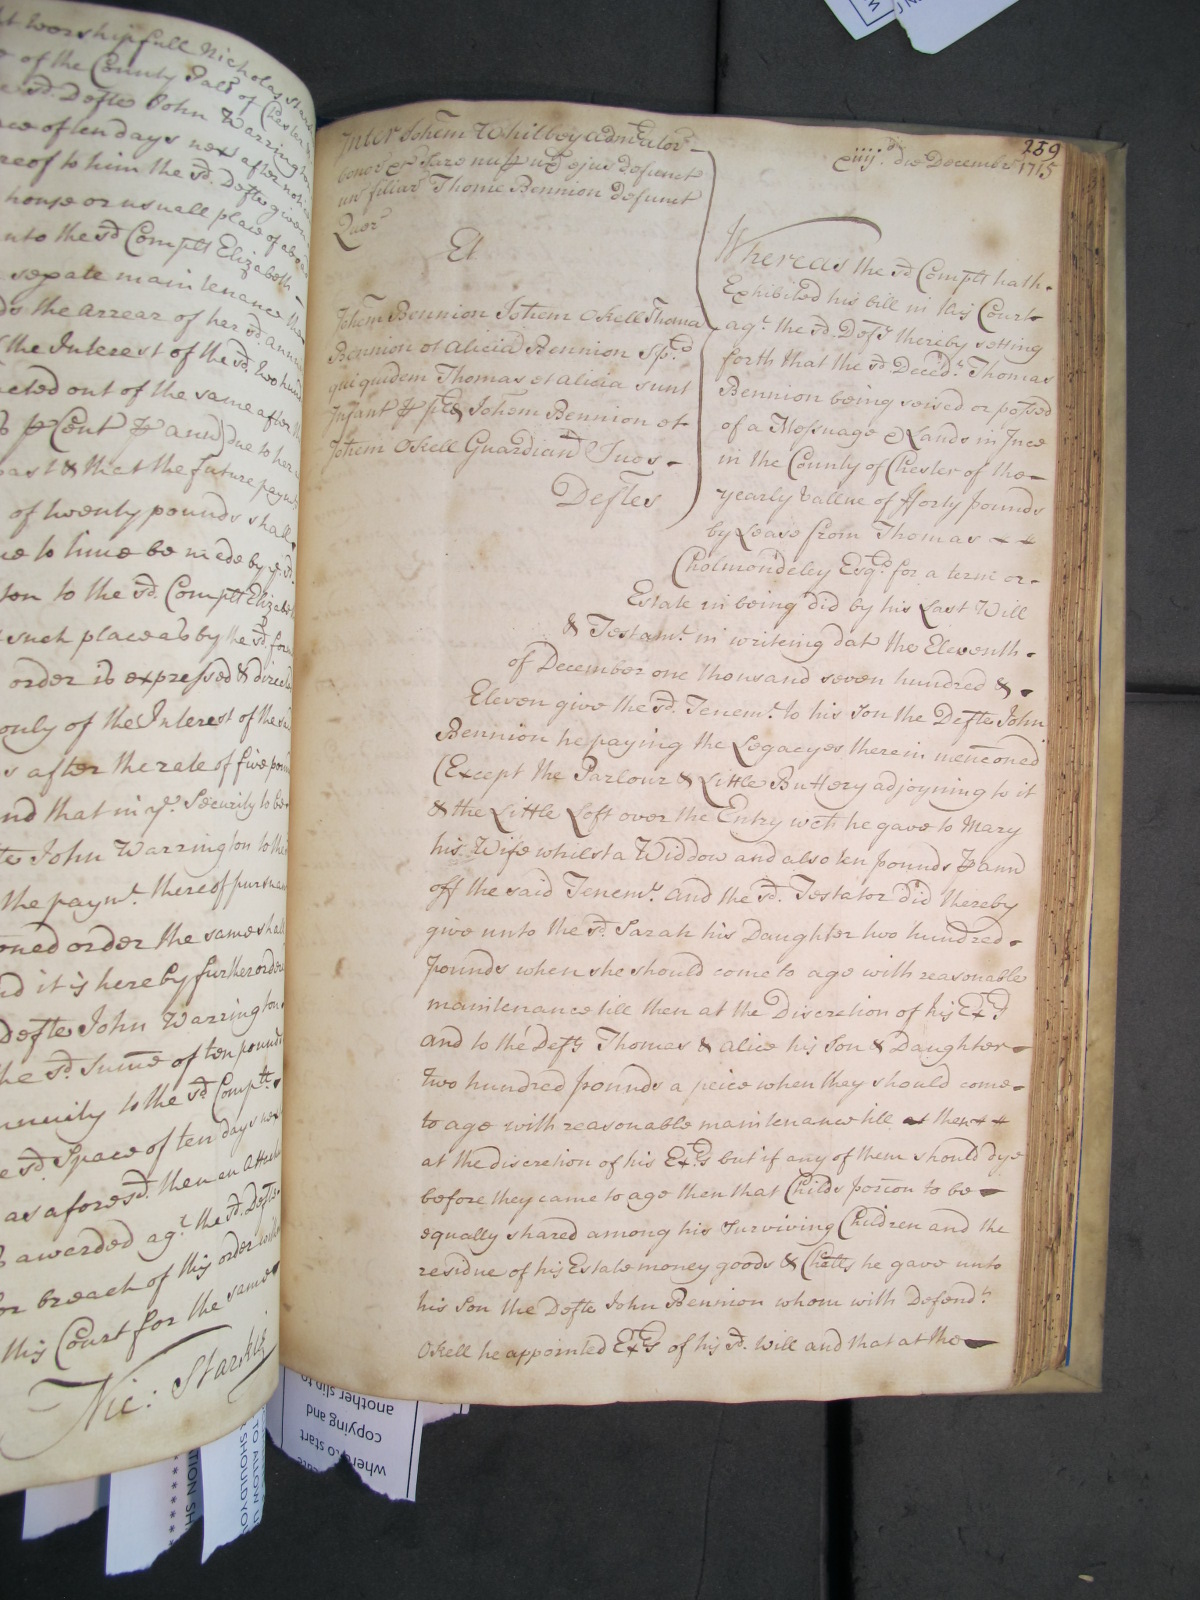 t worshipfull Nicholas Star
of the County Pal of Chester
sd. Defte John Warrington
ace of ten days next after notice
reof to him the sd. Defte given
house or usuall place of aboad
unto the sd Complt Elizabeth
sepate maintenance the
ds the arrear of her sd. annu
the Interest of the sd. two hund
cted out of the same after
p Cent p ann) due to her
past & that the future payment
of twenty pounds shall
me to time be made by ye sd.
ton to the sd. Complt Elizab
such place as by the sd. for
order is expressed & direc
only of the Interest of the sd
s after the rate of five poun
nd that in ye. Security to be
te John Warrington to the
the paymt. thereof pursuan
oned order the same shall
nd it is hereby further ordere
Defte John Warrington
the sd. sume of ten pounds
nuity to the sd Complt
e sd. space of ten days nex
as aforesd. then an Attach
awarded agt. the sd. Defte
or breach of this order
this Court for the same
Nic: Starkey
289
die Decembr 1715
Inter Johem Whitbey Admistor
bonor Sare nup ux ejus defunct
un filiar Thome Bennion defunct
Quer
Et
Johem Bennion Johem Okell Thoma
Bennion et Aliciā Bennion Sp
qui quidem Thomas et Alicia sunt
Infant p Johem Bennion et
Johem Okell Guardian Suos -
Deftes
Whereas the sd Complt hath
Exhibited his bill in this Court
agt. the sd. Defts thereby setting
forth that the sd. Deced. Thomas
Bennion being seised or possed
of a Messuage & Lands in Ince
in the County of Chester of the
yearly vallue of fforty pounds
by Lease from Thomas
Cholmondeley Esqr. for a term or
Estate in being did by his Last Will
& Testamt. in writeing dat the Eleventh
of December one thousand seven hundred &
Eleven give the sd. Tenemt. to his son the Defte John
Bennion he paying the Legacyes therein menconed
(Except the Parlour & Little Buttery adjoyning to it
& the Little Loft over the Entry wch he gave to Mary
his Wife whilst a Widdow and also ten pounds p ann
off the said Tenemt. and the sd. Testator did thereby
give unto the sd. Sarah his Daughter two hundred
pounds when she should come to age with reasonable
maintenance till then at the Discretion of his Exrs
and to the Defts Thomas & Alice his son & Daughter
two hundred pounds a peice when they should come
to age with reasonable maintenance till then
at the discretion of his Exrs but if any of them should dye
before they came to age then that Childs porcon to be
equally shared among his surviving Children and the
residue of his Estate money goods & Chells he gave unto
his son the Defte John Bennion whom with Defendt.
Okell he appointed Exrs of his sd. will and that at the
another slip to
copying and
where to start